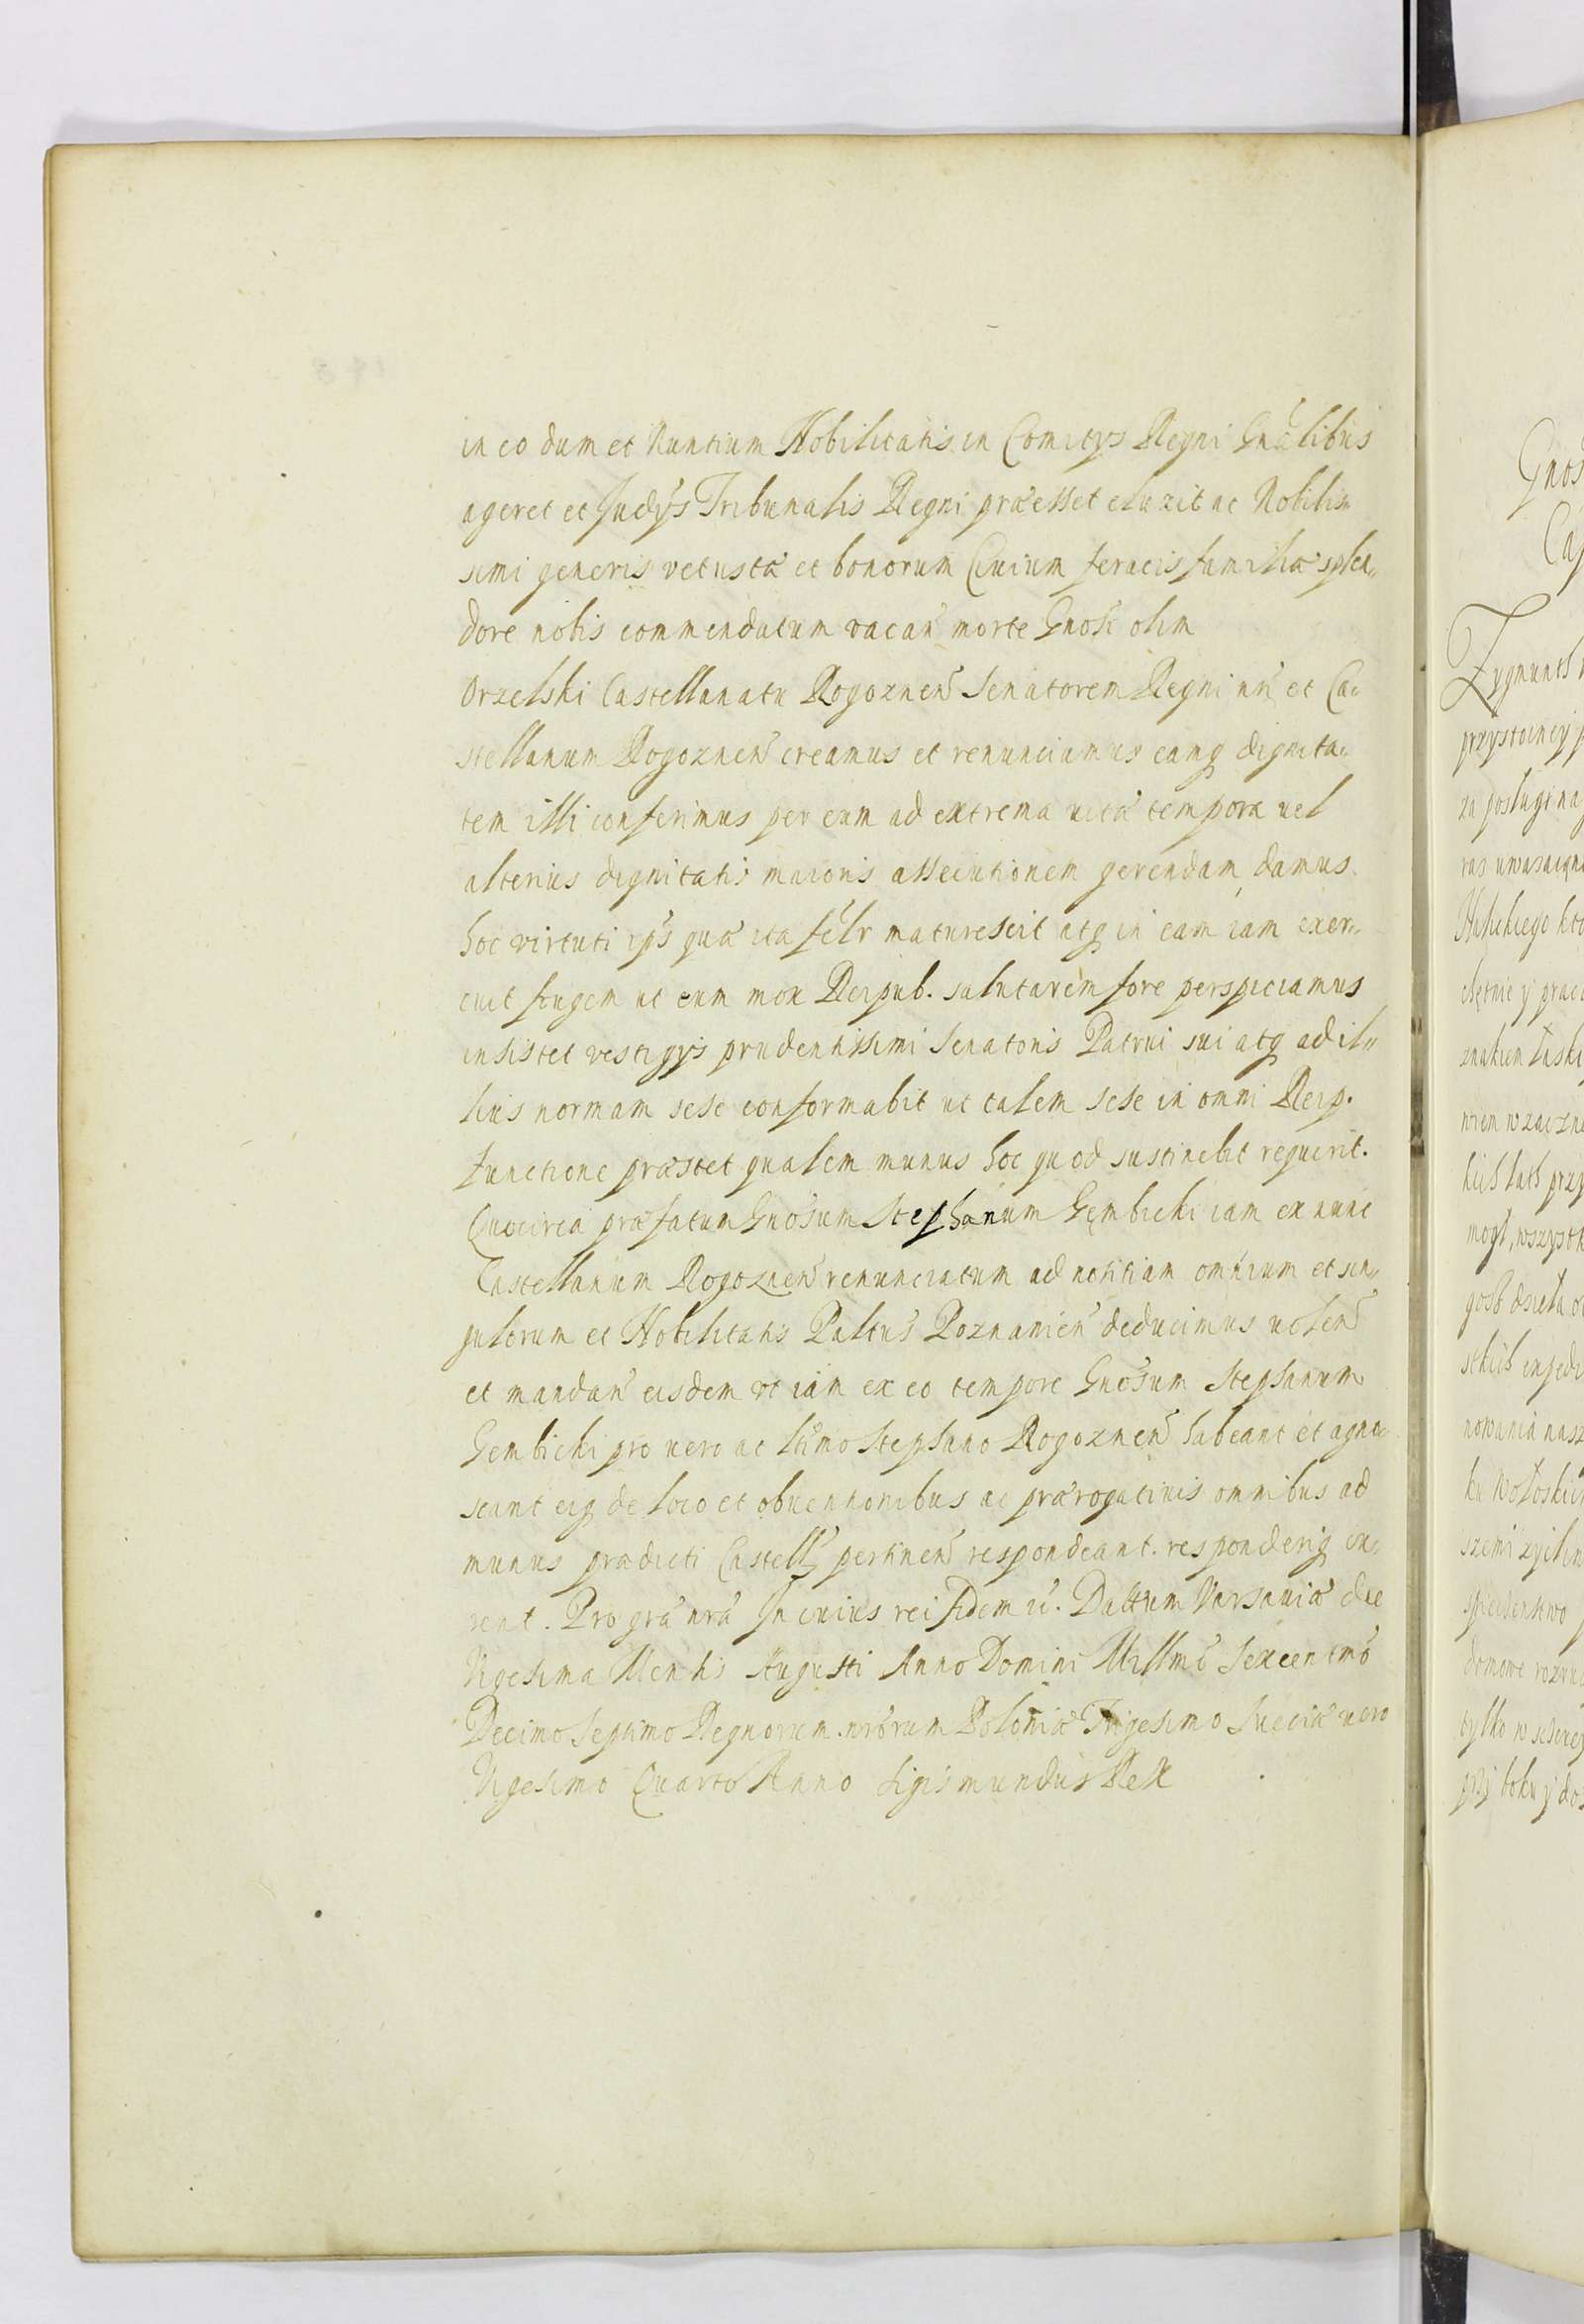 in eo dum et Nuntium Nobilitatis in Comitys Regni Gnãlibus
ageret et Judys Tribunalis Regni præesset eluxit ac Nobilis„
simi generis vetusta et bonorum Civium feracis familiæ splen„
dore nobis commendatum vacan morte Gnosi olim
Orzelski Castellanatu Rogoznen Senatorem Regni nri et Ca„
stellanum Rogoznen creamus et renunciamus eamq dignita„
tem illi conferimus per eum ad extrema vitæ tempora vel
alterius dignitatis maioris assecutionem gerendam, damus
hoc virtuti ips quæ ita felr maturescit atq in eam iam exer„
cuit frugem ut eum mox Reipub. salutarem fore perspiciamus
insistet vestigys prudentissimi Senatoris Patrui sui atq ad il„
lius normam sese conformabit ut talem sese in omni Reip.
functione præstet qualem munus hoc quod sustinebit requirit.
Quocirca præfatum Gnosum Stephanum Gembicki iam ex nunc
Castellanum Rogoznen renunciatum ad notitiam omnium et sin„
gulorum et Nobilitatis Paltus Poznanien deducimus volen
et mandan eisdem vt iam ex eo tempore Gnosum Stephanum
Gembicki pro vero ac ltimo Stephano Rogoznen habeant et agno„
scant eiq de loco et obventionibus ac prærogativis omnibus ad
munus prædicti Castell pertinen respondeant. responderiq cu„
rent. Pro gra nra In cuius rei fidem &. Dattum Varsaviæ die
Vigesima Mensis Augusti Anno Domini Millmo Sexcentmo
Decimo Septimo Regnorum nrorum Poloniæ Trigesimo Sueciæ vero
Vigesimo Quarto Anno Sigismundus Rex
Zygmunth
przystoiney
za poslugi na